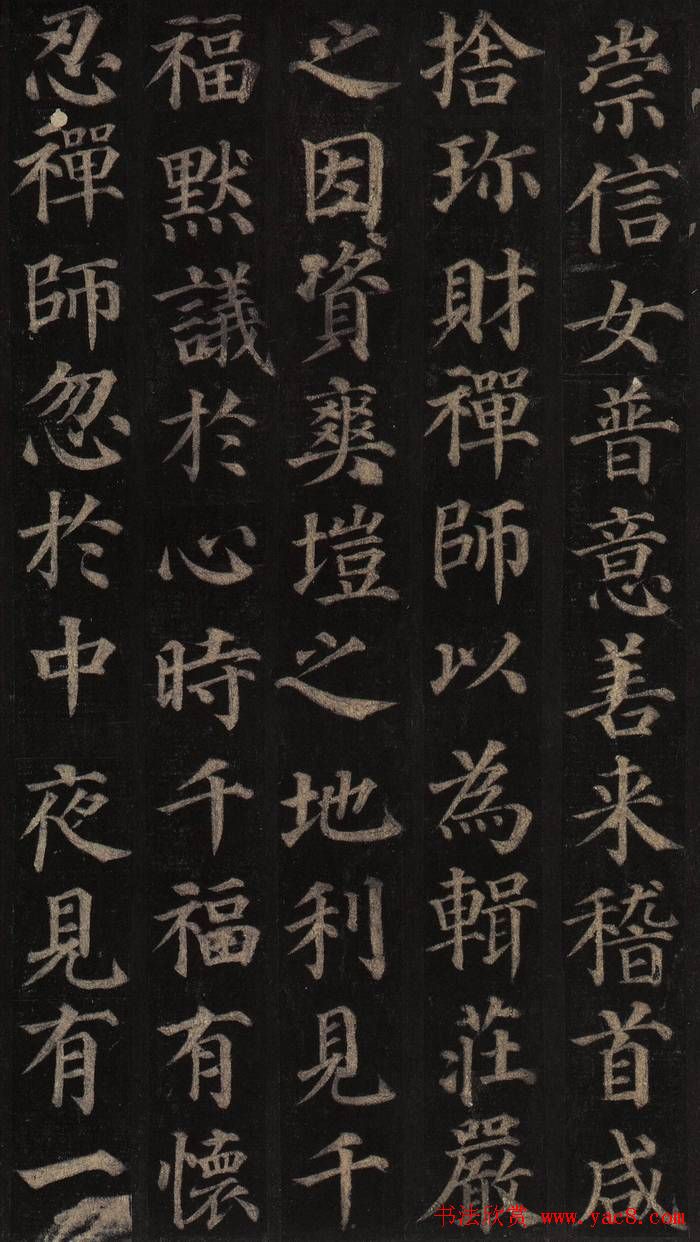 崇信女普意善来稽首咸
捨珎財禪師以為輯莊嚴
之因資爽塏之地利見千
福默議於心時千福有懷
忍禪師忽於中夜見有一
书法欣赏 www.yac8.com